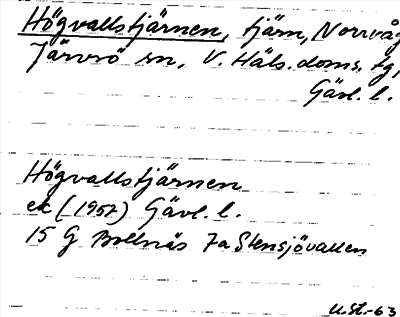 Högvallstjärnen, tjärn, Norrvåg
Järvsö sn, V. Häls. doms. tg,
Gävl. l.
Högvallstjärnen
ek (1957) Gävl. l.
15 G Bollnäs 7a Stensjövallen
U.St.-63